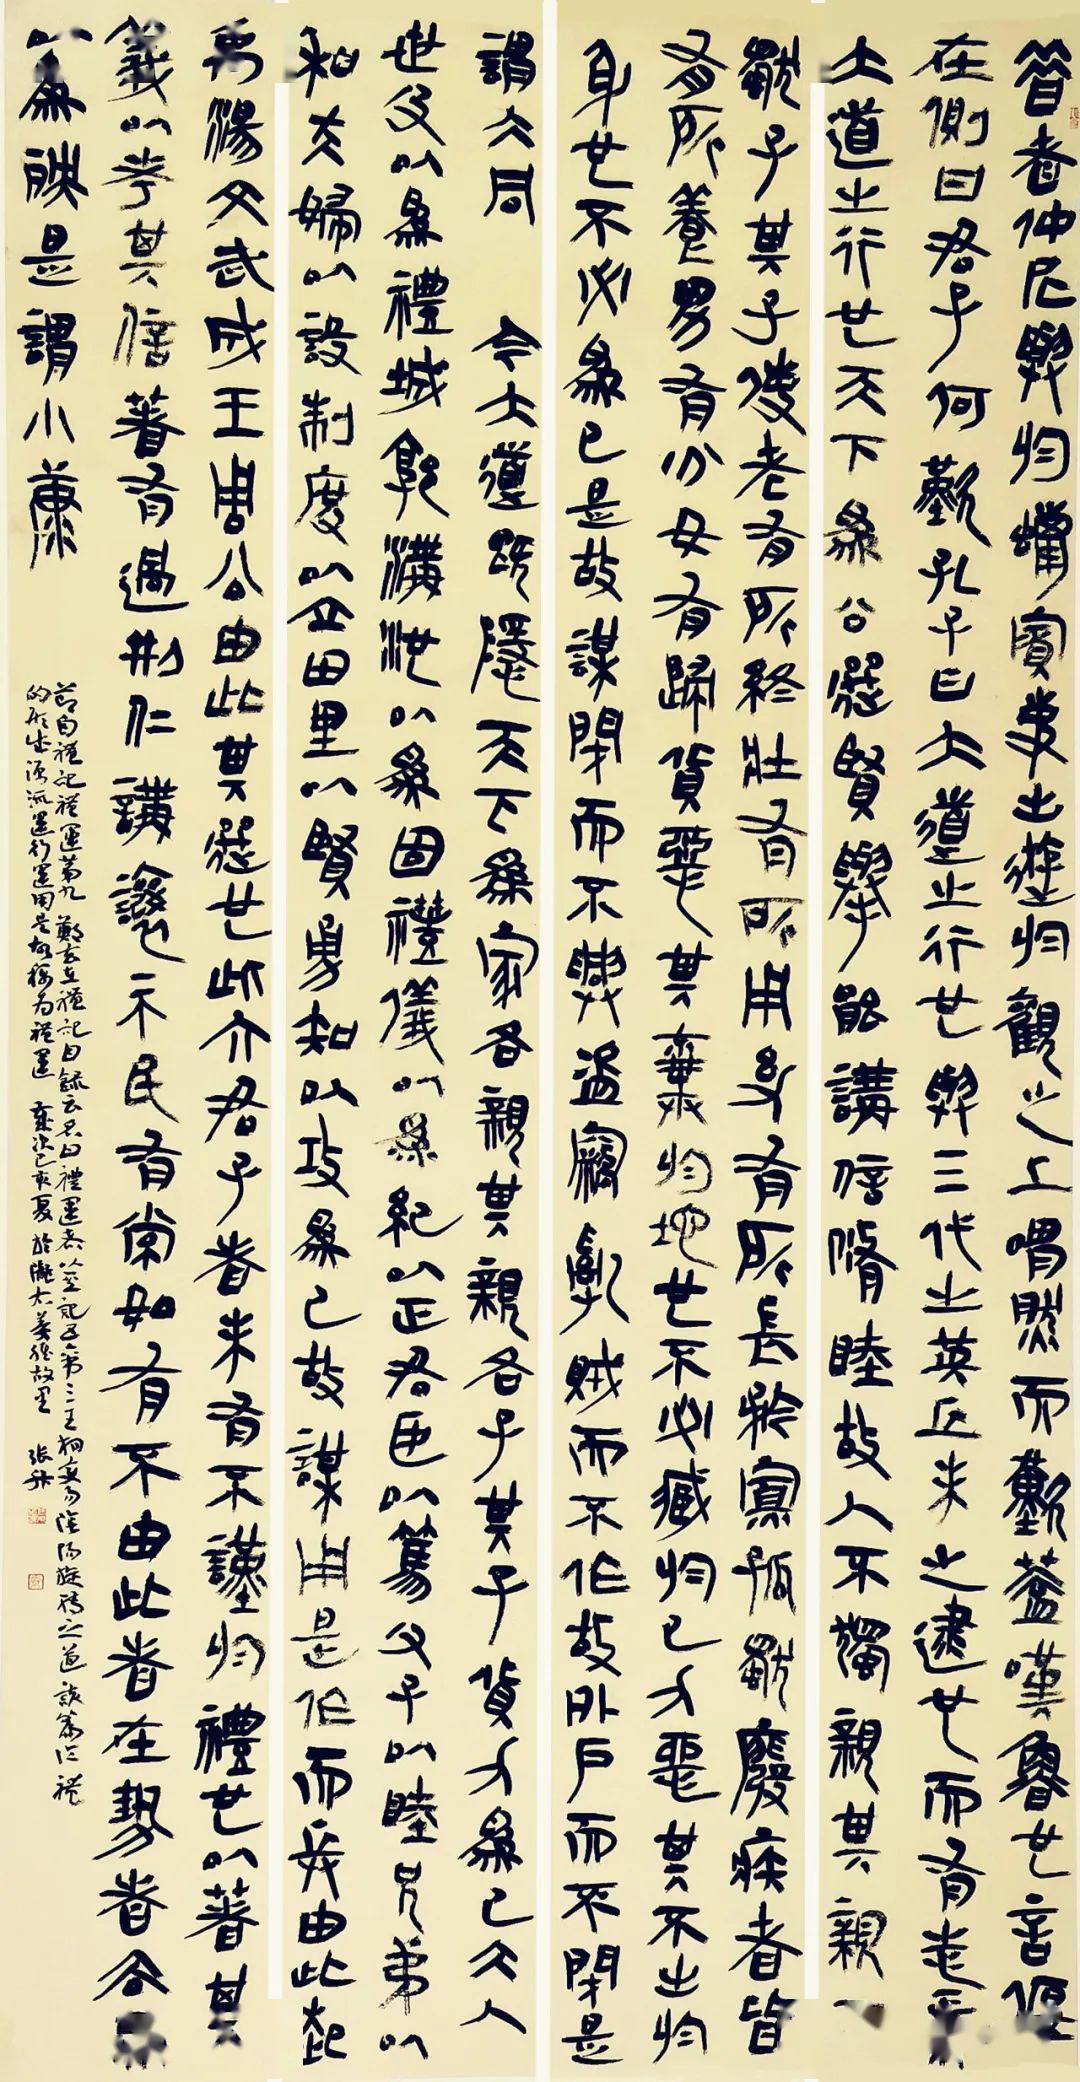 昔者仲尼與於蠟賓事出遊於觀之上喟然而歎蓋嘆魯也言偃
在側曰君子何歎孔子曰大道之行也與三代之英丘未之逮也而有志焉
大道之行也天下為公選賢舉能講信脩睦故人不獨親其親不
獨子其子使老有所終壯有所用幼有所長矜寡孤獨廢疾者皆
有所養男有分女有歸貨惡其棄於地也不必藏於己力惡其不出於
身也不必為己是故謀閉而不興盜竊亂賊而不作故外戶而不閉是
謂大同 今大道既隱天下為家各親其親各子其子貨力為己大人
世及以為禮城郭溝池以為固禮儀以為紀以正君臣以篤父子以睦兄弟以
和夫婦以設制度以立田里以賢勇知以功為己故謀用是作而兵由此起
禹湯文武成王周公由此其選也此六君子者未有不謹於禮也以著其
義以考其信著有過刑仁講讓示民有常如有不由此者在勢者去眾
以為殃是謂小康
節自禮記禮運第九 鄭玄在禮記目錄云名曰禮運者以其記五帝三王相變易陰陽旋轉之道 該篇從禮
的形成源流運行運用是故稱為禮運 歲次己亥夏於隴右姜維故里 張升